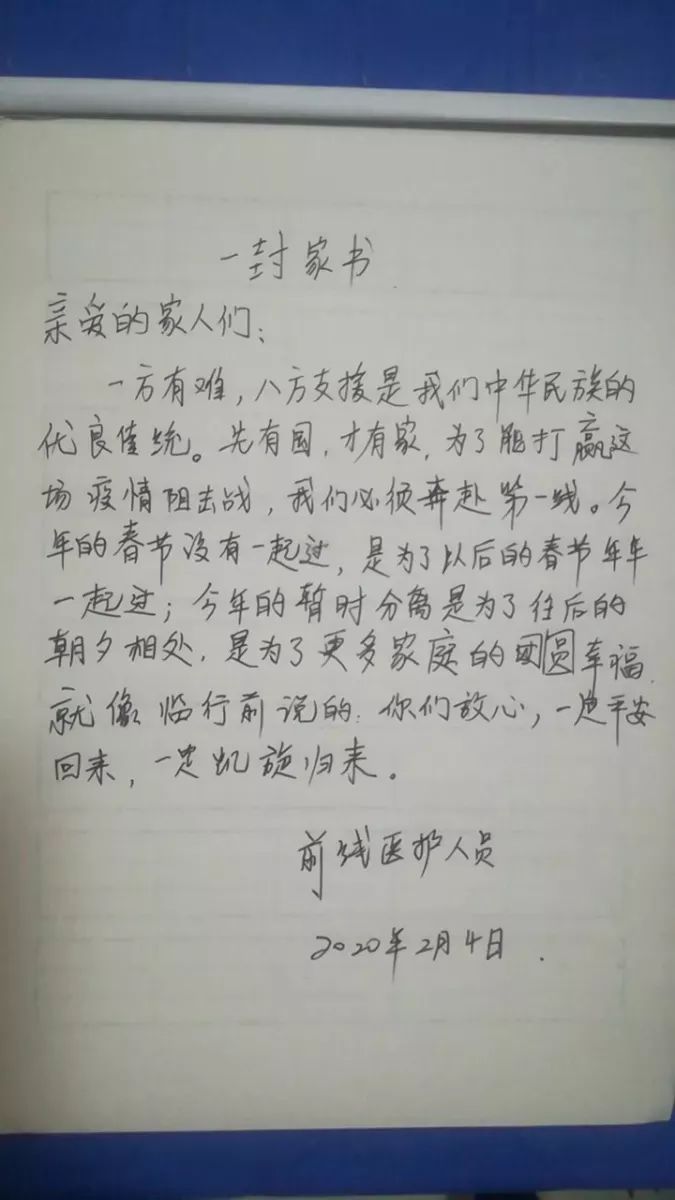 一封家书
亲爱的家人们：
一方有难，八方支援是我们中华民族的
优良传统。先有国，才有家，为了能打赢这
场疫情阻击战，我们必须奔赴第一线。今
年的春节没有一起过，是为了以后的春节年年
一起过；今年的暂时分离是为了往后的
朝夕相处，是为了更多家庭的团圆幸福，
就像临行前说的：你们放心，一定平安
回来，一定凯旋归来。
前线医护人员
2020年2月4日.